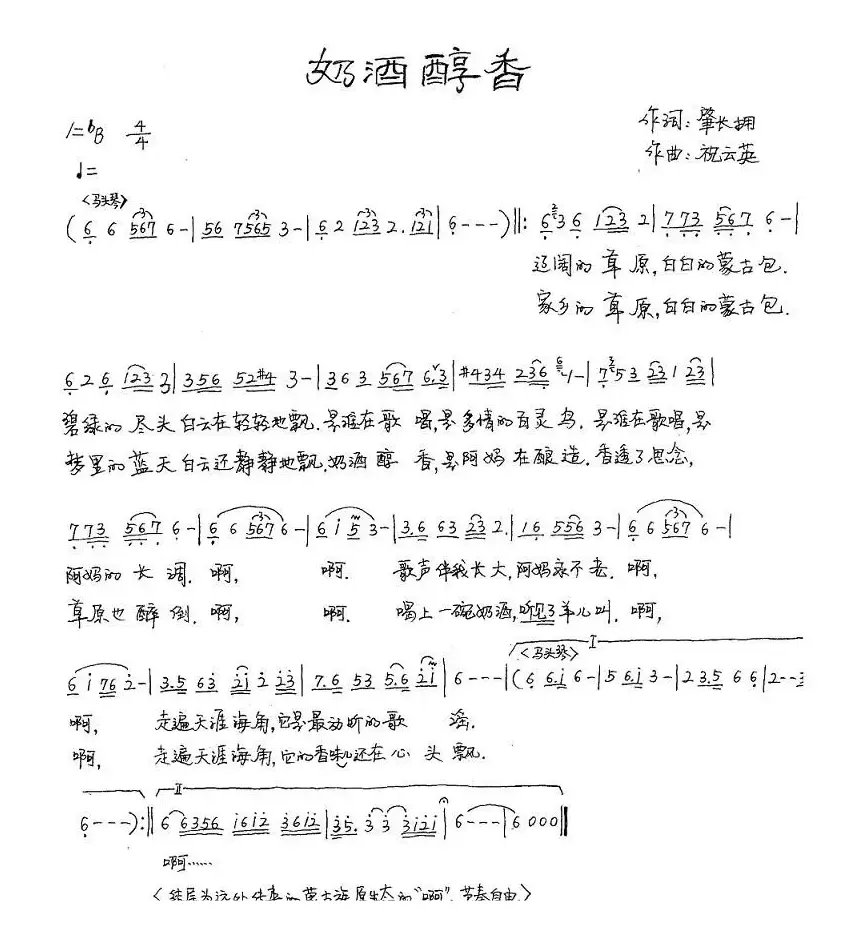 奶酒醇香
1=♭B 4/4
作词：肇长拥
♩=
作曲：祝云英
<马头琴>
( 6 6 567 6 - | 56 7565 3 - | 6 2 123 2. 121 | 6 - - - ) ‖: 6 3 6 123 2 | 773 567 6 - |
辽阔的 草 原，白白的蒙古包.
家乡的 草 原，白白的蒙古包.
6 2 6 123 2 | 356 52#4 3 - | 3 6 3 567 6.3 | #434 236 1 - | 7 5 3 23 1 23 |
碧绿的 尽头 白云在轻轻地飘. 是谁在歌 唱，是多情的百灵鸟. 是谁在歌唱，是
梦里的蓝天 白云还静静地飘. 奶酒 醇 香，是阿妈 在酿造. 香透了思念，
773 567 6 - | 6 6 567 6 - | 6 i 5 3 - | 3.6 63 23 2. | 16 556 3 - | 6 6 567 6 - |
阿妈的 长 调. 啊， 啊. 歌声伴我长大，阿妈永不老. 啊，
草原也 醉 倒. 啊， 啊. 喝上一碗奶酒，听见了羊儿叫. 啊，
I
<马头琴>
6 i 76 2 - | 3.5 63 21 2 23 | 7.6 53 5.6 2i | 6 - - - | ( 6 6.i 6 - | 5 6.i 3 - | 2 3.5 6 6 | 2 - - 3
啊， 走遍天涯海角，它是最动听的歌 谣.
啊， 走遍天涯海角，它的香味还在心 头 飘.
II
6 - - - ) :‖ 6 6356 i6i2 36i2 | 35. 3 3 3i2i | 6 - - - | 6 0 0 0 ‖
啊……
<结尾为远处传来的蒙古族原生态的“啊”，节奏自由>